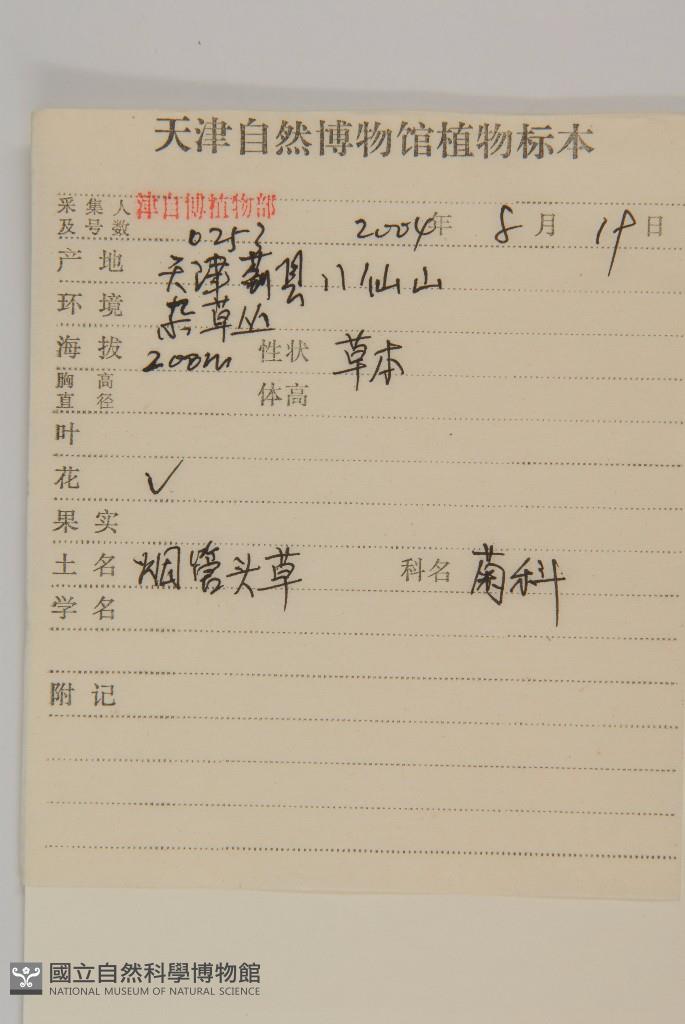 天津自然博物馆植物标本
采集人 津自博植物部
及号数 0253 2004年 8月 19日
产地 天津蓟县八仙山
环境 杂草丛
海拔 200m 性状 草本
胸高
直径 体高
叶
花 ✓
果实
土名 烟管头草 科名 菊科
学名
附记
國立自然科學博物館
NATIONAL MUSEUM OF NATURAL SCIENCE